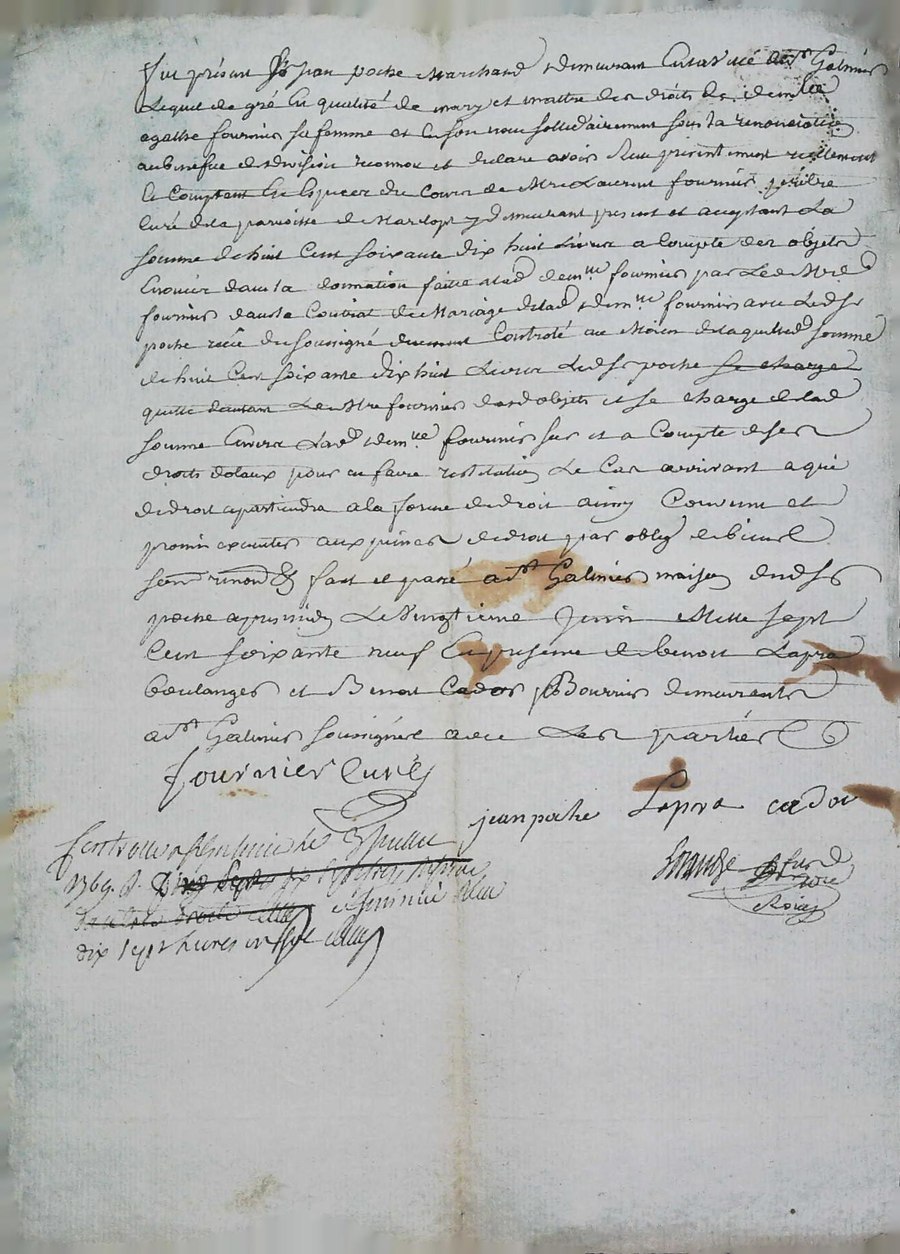 fut présent Sr jean poche Marchand demeurant en la ville de St Galmier
Lequel de gré En qualité de mary et maitre des droits de demlle
agathe fournier sa femme et en son nom sollidairement sous la renonciation
au benefice de division reconnu et declare avoir Reçu presentement reellement
et Comptant En Especes du Cours de Mre Laurent fournier prêtre
Curé de la paroisse de y demeurant present et acceptant La
somme de huit Cent soixante dix huit Livres a Compte des objets
Enoncés dans la donnation faitte a lad demlle fournier par Led Mre
fournier dans le Contrat de Mariage de lad demlle fournier avec Led Sr
poche reçû du soussigné duement Controlé au Moien de laquelled somme
de huit Cent soixante dix huit Livres Led Sr poche se charge
quitte dautant Led Mre fournier desd objets et se charge de lad
somme Envers Lad demlle fournier sur et a Compte de ses
droits dotaux pour en faire restitution Le Cas arrivant a qui
de droit apartiendra a la forme de droit ainsy Convenu et
promis executer aux peines de droit par oblig de biens
renon & fait et passé a St Galmier maison dud Sr
poche apres midy Le vingtieme Juin Mille sept
Cent soixante neuf En presence de benoit Lapra
boulanger et Benoit Cador demeurants
a St Galmier soussignés avec Les parties
fournier Curé
jean poche Lapra cador
Controllé a St Galmier le
1769. R.
dix sept livres